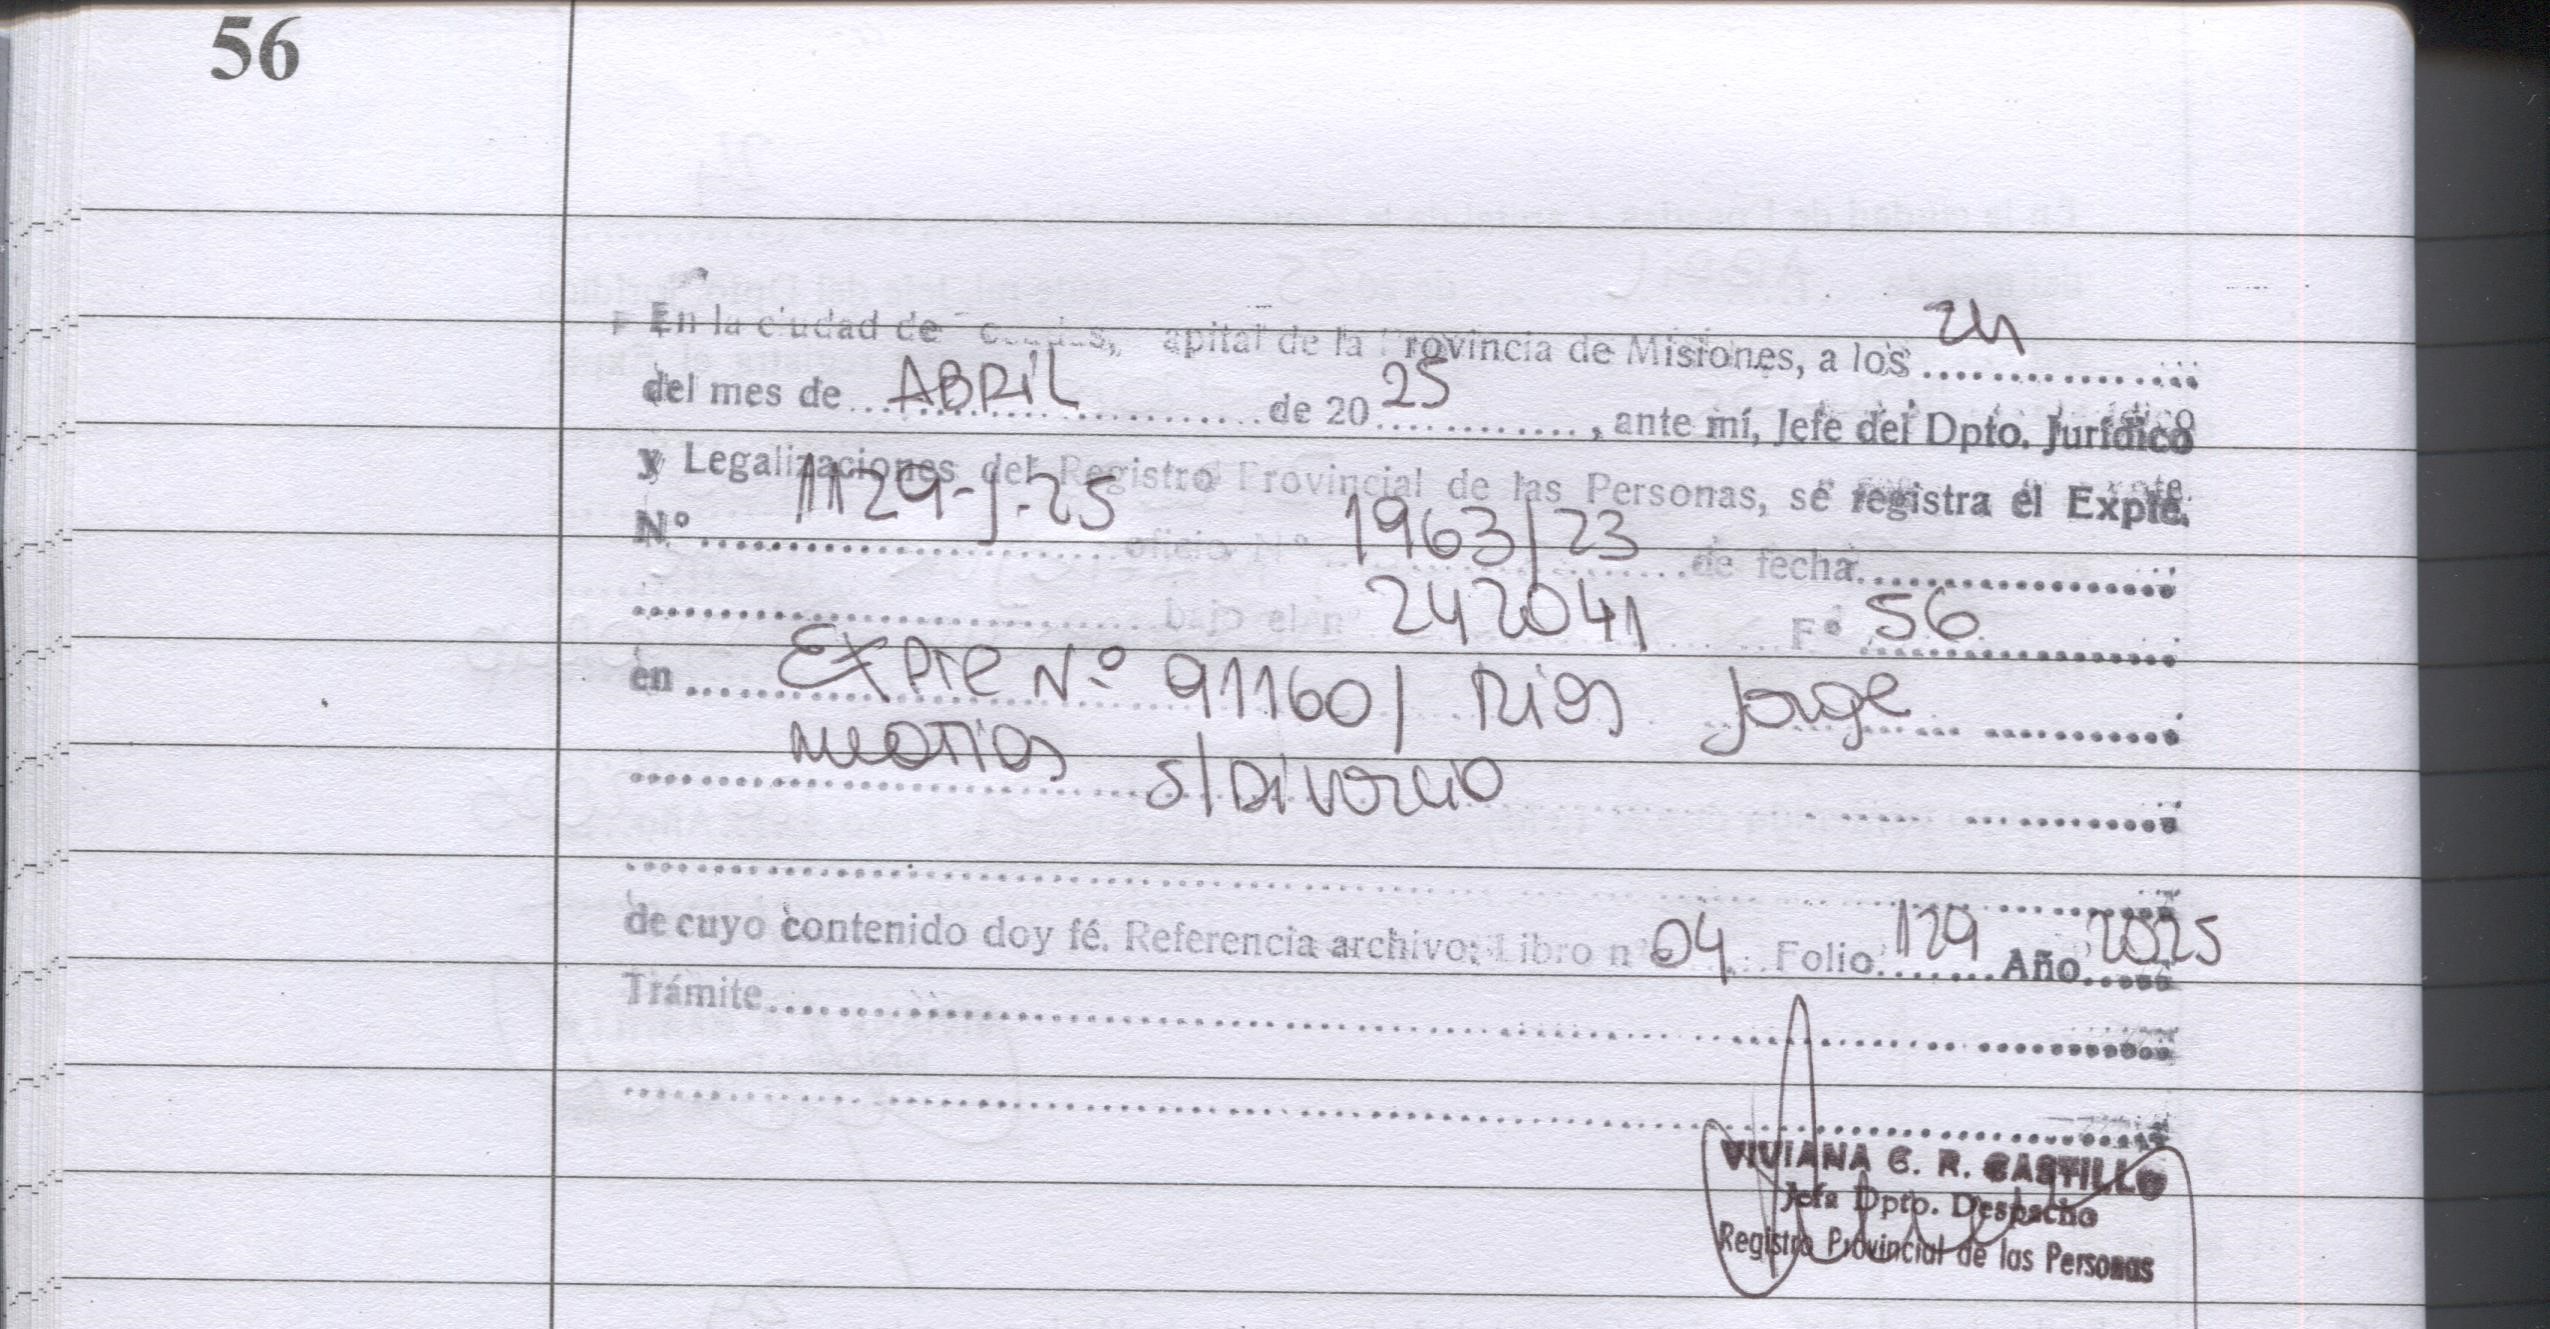 56
En la ciudad de apital de la Provincia de Misiones, a los 24
del mes de ABRIL de 20 25, ante mí, Jefe del Dpto. Jurídico
y Legalizaciones del Registro Provincial de las Personas, se registra el Expte.
Nº 1129-J-25 oficio Nº 1963/23 de fecha
bajo el nº 242041 Fº 56
en Expte Nº 91160/ Rios Jorge
Matias s/Divorcio
de cuyo contenido doy fé. Referencia archivo: Libro nº 04 Folio 129 Año 2025
Trámite
VIVIANA G. R. CASTILLO
Jefa Dpto. Despacho
Registro Provincial de las Personas